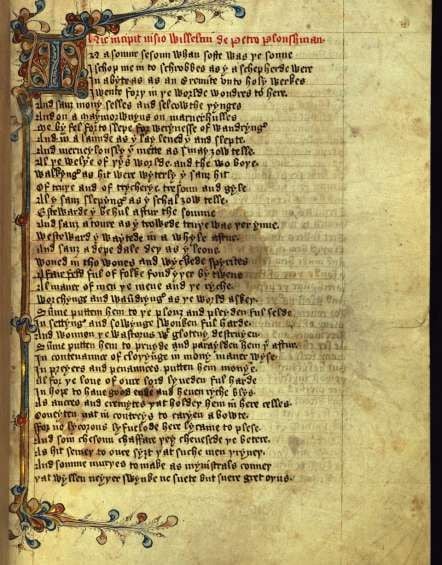 Hic incipit visio Willelmi de Petro Plouhman.
In a somur sesoun whan softe was ye sonne
I schop me in to schrobbes as y a schepherde were
In abyte as an Ermite vn holy werkes
I wente fory in ye worlde wondres to here.
And saw mony selles and selcouthe yynges
And on a maymorwnyng on maruerhulles
me by fel for to slepe for werynesse of wandryng
And in a launde as y lay lened y and slepte.
And merueylously y mette as y may 3ow telle.
Al ye welye of yys worlde. and the wo boye.
Walkyng as hit were wyterly y saw hit
Of truye and of trycherye. tresoun and gyle
Al y saw slepyng as y schal 3ow telle.
Estewarde y behul aftur the sonne
And saw a toure as y trowede truye was yer ynne.
Westeward y waytede in a whyle aftur.
And saw a depe dale dey as y leone.
Woned in tho wones and wyckede spyrites
A fair feld ful of folke fond y yer by twene
Al maner of men ye mene and ye ryche.
Worchynge and wandryng as ye world askey.
Summe putten hem to ye plouz and pleyden ful selde
In settyng and sowynge swonken ful harde.
And wonnen yt yis wastours wt glotony destruyen
Summe putten hem to pruyde and paraylden hem yr aftur.
In contenaunce of cloyynge in mony maner wyse
In preyers and penaunces putten hem monye.
Al for ye loue of oure lord lyueden ful harde
In hope to haue good ende and heuen ryche blys.
As ancres and eremytes yat holdey hem in here celles.
Coueyten nat in contreys to caryen a bowte.
For no lycorous lyfuelode here lycame to plese.
And som chesoun chaffare yey cheuesede ye betere.
As hit semey to oure sy3t yat suche men yryuey.
And somme muryes to make as mynistrals conney
yat wyllen neyyer swynke ne suete but swere gret oyus.